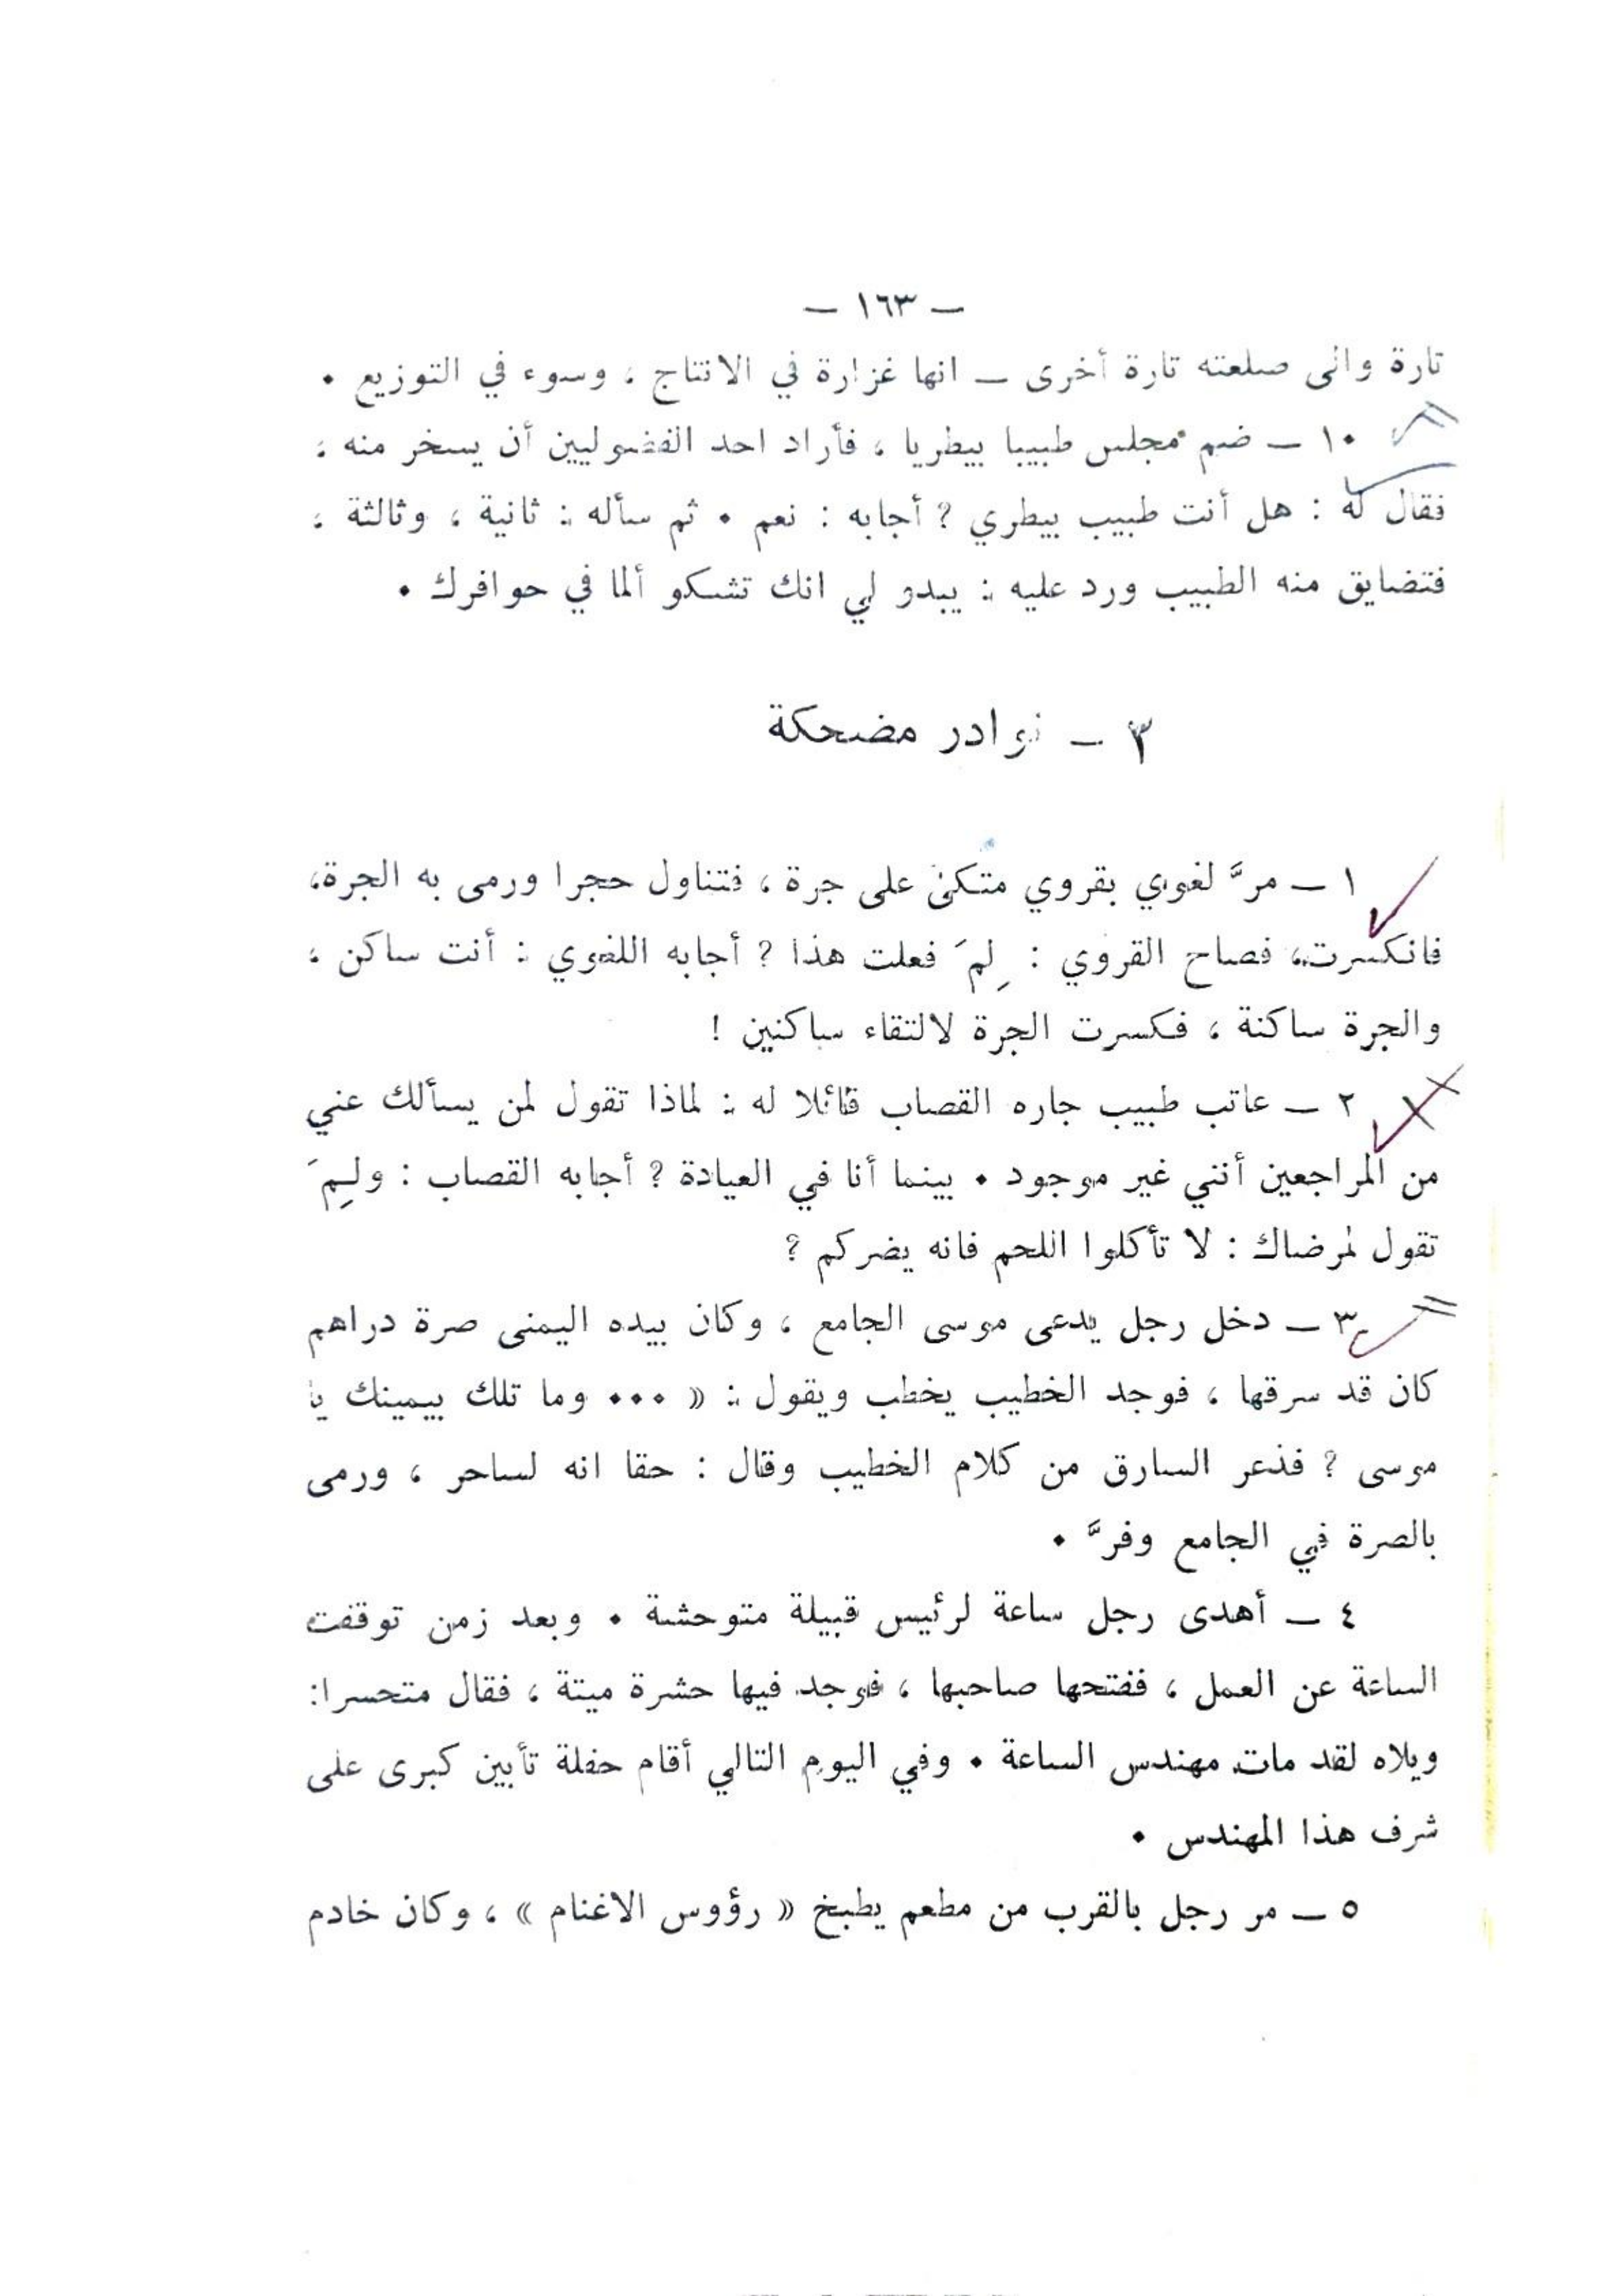 — ١٦٣ —
تارة والى صلعته تارة أخرى — انها غزارة في الانتاج ، وسوء في التوزيع .
١٠ — ضم مجلس طبيبا بيطريا ، فأراد احد الفضوليين أن يسخر منه ،
فقال له : هل أنت طبيب بيطري ؟ أجابه : نعم . ثم سأله : ثانية ، وثالثة ،
فتضايق منه الطبيب ورد عليه : يبدو لي انك تشكو ألما في حوافرك .
٣ — نوادر مضحكة
١ — مرَّ لغوي بقروي متكئ على جرة ، فتناول حجرا ورمى به الجرة،
فانكسرت، فصاح القروي : لِمَ فعلت هذا ؟ أجابه اللغوي : أنت ساكن ،
والجرة ساكنة ، فكسرت الجرة لالتقاء ساكنين !
٢ — عاتب طبيب جاره القصاب قائلا له : لماذا تقول لمن يسألك عني
من المراجعين أنني غير موجود . بينما أنا في العيادة ؟ أجابه القصاب : ولِمَ
تقول لمرضاك : لا تأكلوا اللحم فانه يضركم ؟
٣ — دخل رجل يدعى موسى الجامع ، وكان بيده اليمنى صرة دراهم
كان قد سرقها ، فوجد الخطيب يخطب ويقول : « ... وما تلك بيمينك يا
موسى ؟ فذعر السارق من كلام الخطيب وقال : حقا انه لساحر ، ورمى
بالصرة في الجامع وفرَّ .
٤ — أهدى رجل ساعة لرئيس قبيلة متوحشة . وبعد زمن توقفت
الساعة عن العمل ، ففتحها صاحبها ، فوجد فيها حشرة ميتة ، فقال متحسرا:
ويلاه لقد مات مهندس الساعة . وفي اليوم التالي أقام حفلة تأبين كبرى على
شرف هذا المهندس .
٥ — مر رجل بالقرب من مطعم يطبخ « رؤوس الاغنام » ، وكان خادم